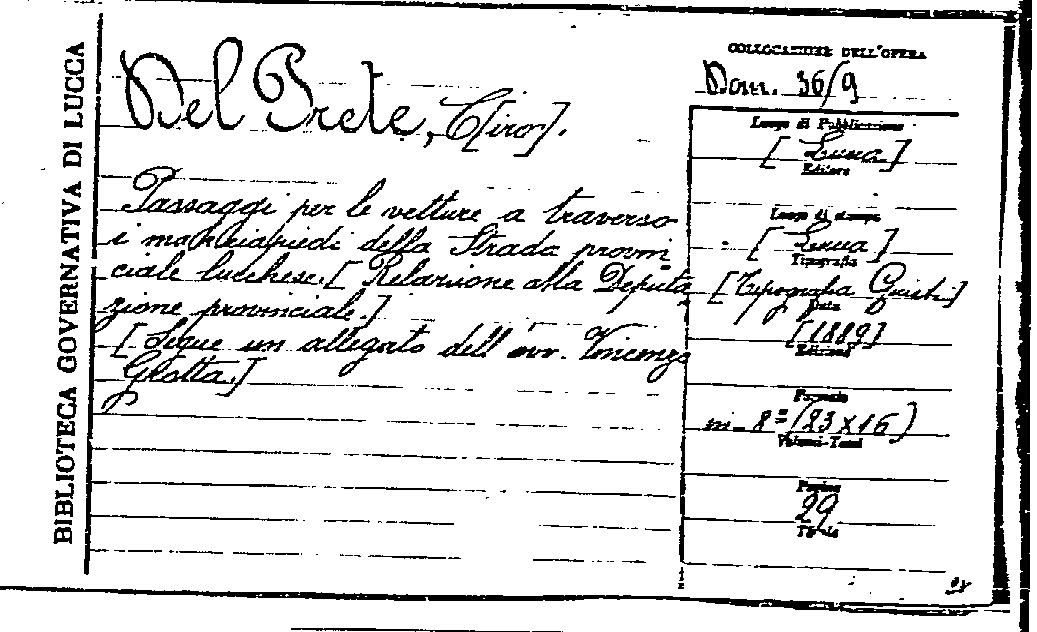 BIBLIOTECA GOVERNATIVA DI LUCCA
Del Prete, C[iro].
Passaggi per le vetture a traverso
i marciapiedi della Strada provin
ciale lucchese. [Relazione alla Deputa
zione provinciale.]
[Segue un allegato dell'avv. Vincenzo
Giotta.]
COLLOCAZIONE DELL'OPERA
Dom. 36/9
Luogo di Pubblicazione
[Lucca]
Editore
Luogo di stampa
[Lucca]
Tipografia
[Tipografia Giusti]
Data
[1889]
Edizione
Formato
in-8º (23x16)
Volumi-Tomi
Pagine
29